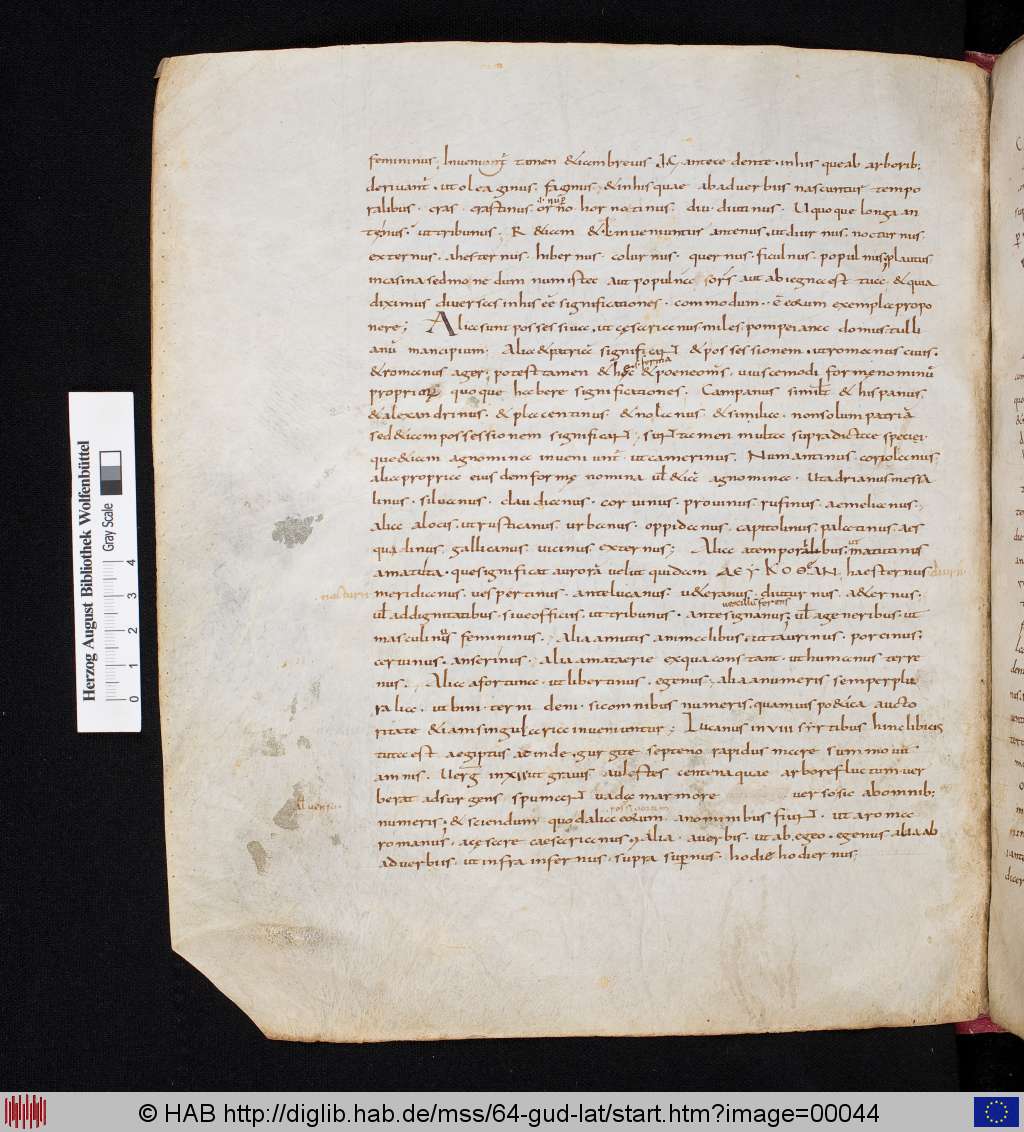 femininus; Inveniunt͛ tamen & iam breuis .I. antecedente . in his que ab arborib;
deriuant͛ . ut oleaginus . faginus; & in his quae ab aduerbiis nascuntur tempo
ralibus . cras . crastinus . horno hornotinus . diu . diutinus . U quoque longa an
te nus . ut tribunus . R & iam & l inueniuntur ante nus . ut diurnus . nocturnus .
externus . ahesternus . hibernus . colurnus . quernus . ficulnus . populnus plautus
incasina sed mone dum num istec aut populnea sors aut abiegna est tua; & quia
diximus diuersas in his eē significationes . commodum . ē eorum exempla propo
nere; Alia sunt possessiua . ut cęsarianus miles pompeiana domus tulli
anū mancipium; Alia & patriā significant & possessionem . ut romanus ciuis .
& romanus ager; potest tamen & hęc & poene oms̄ . uiuscemodi formę nominū
propriarū quoque habere significationes . Campanus similit̄ & hispanus .
& alexandrinus . & placentinus & nolanus & similia . non solum patriā
sed & iam possessionem significant; sunt tamen multa supradictae speciei
que & iam agnomina inueniunt͛ ut camerinus . Numantinus . coriolanus
alia propria eiusdem formę nomina uł & iā agnomina . Ut adrianus messa
linus . siluanus . claudianus . coruinus . prouinus . rufinus . aemelianus .
alia a locis . ut rusticanus . urbanus . oppidanus . capitolinus . palatinus . aes
quilinus . gallicanus . uicinus externus; Alia a temporalibus . ut matutinus
a matuta . que significat aurorā uel ut quidam ΛΕΥΚΟΘΕΑΝ . haesternus diurn
nocturn meridianus . uespertinus . antelucanus . ueteranus . diuturnus . aeternus .
uł a dignitatibus . siue officiis . ut tribunus . antesignanus; uł a generibus . ut
uexillū ferens
masculinus femininus . Alia a mutis animalibus . ut taurinus . porcinus;
ceruinus . anserinus . alia a materie ex qua constant . ut humanus terre
nus . Alia a fortuna . ut libertinus . egenus; alia a numeris semper plu
ralia . ut bini . terni deni . sicomnibus numeris . quamuis poetica aucto
ritate & iam singularia inueniuntur; Lucanus in VIII syrtibus hinc libicis
tuta est aegiptus at inde . gurgite septeno rapidus mare summouit
amnis . Uerg in X it grauis aulestes centenaque arbore fluctum uer
berat adsurgens spumant uada marmore uerso sic ab omnib;
numeris . & sciendum quod alia eorum a nominibus fiunt . ut a roma
romanus . a cęsare caesarianus . alia . a uerbis . ut ab egeo . egenus alia ab
aduerbiis ut infra infernus . supra supernus . hodie hodiernus;
Herzog August Bibliothek Wolfenbüttel
Gray Scale
0 1 2 3 4
© HAB http://diglib.hab.de/mss/64-gud-lat/start.htm?image=00044